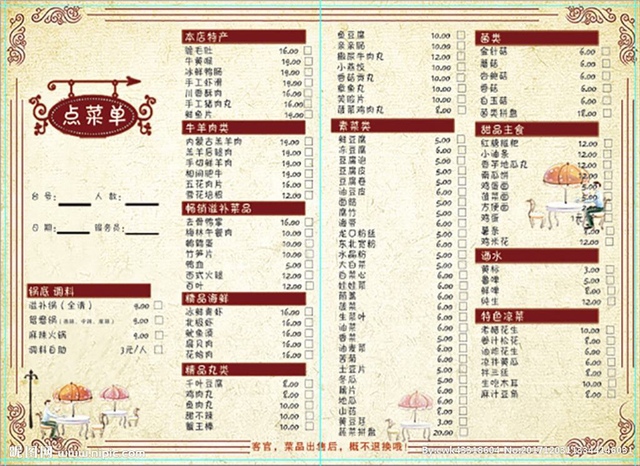 点菜单
台号：
人数：
日期：
服务员：
锅底 调料
滋补锅（全清） 9.00
鸳鸯锅
麻辣火锅 9.00
调料自助 3元/人
本店特产
脆毛肚 16.00
牛黄喉 19.00
冰鲜鸭肠 19.00
手工虾滑 19.00
川香酥肉 16.00
手工猪肉丸 16.00
鲜鱼片 19.00
牛羊肉类
内蒙古羔羊肉 19.00
羔羊后腿肉 19.00
手切鲜羊肉 19.00
相间肥牛 19.00
五花肉片 16.00
雪花培根 12.00
畅销滋补菜品
去骨鸭掌 16.00
梅林午餐肉 10.00
鹌鹑蛋 10.00
竹笋片 10.00
鸭血 5.00
西式火腿 12.00
百叶 12.00
精品海鲜
冰鲜青虾 16.00
北极虾 16.00
鱿鱼须 16.00
扇贝肉 16.00
花蛤肉 16.00
精品丸类
千叶豆腐 8.00
鸡肉丸 8.00
鱼肉丸 10.00
甜不辣 10.00
蟹王棒 10.00
鱼豆腐 10.00
亲亲肠 10.00
撒尿牛肉丸 12.00
小荔悦 10.00
香菇贡丸 10.00
章鱼丸 10.00
笑脸片 10.00
蔬菜鸡肉丸 8.00
素菜类
鲜豆腐 5.00
冻豆腐 6.00
豆腐泡 6.00
豆腐皮 6.00
豆腐卷 6.00
油豆皮 6.00
面筋 6.00
腐竹 6.00
海带 6.00
龙口粉丝 6.00
东北宽粉 6.00
水晶粉 6.00
大白菜 6.00
白菜心 6.00
娃娃菜 6.00
茼蒿 6.00
菠菜 6.00
生菜叶 6.00
油菜 6.00
香菜 6.00
油麦菜 6.00
苦菊 6.00
土豆片 6.00
冬瓜 6.00
藕片 6.00
地瓜 6.00
山药 8.00
黄豆芽 3.00
蔬菜拼盘 20.00
菌类
金针菇 6.00
蘑菇 6.00
杏鲍菇 6.00
香菇 6.00
白玉菇 6.00
菌类拼盘 18.00
甜品主食
红糖糍粑 12.00
小油条 12.00
香芋地瓜丸 12.00
南瓜饼
鸡蛋面
蔬菜面
方便面
鸡蛋
薯条
鸡米花 12.00
酒水
黄标 3.00
鲁啤 5.00
鲜啤 8.00
纯生 12.00
特色凉菜
老醋花生 10.00
姜汁松花 8.00
油炸花生 6.00
凉拌黄瓜 6.00
拌三丝 8.00
生吃木耳 10.00
麻汁豆角 8.00
客官，菜品出售后，概不退换哦！